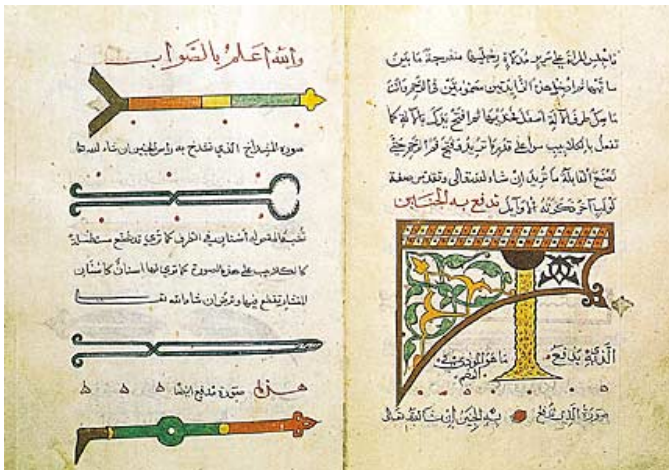 فاجلس المراة على سرير مدلاة رجليها منفرجة ما بين
ساقيها ثم اضبط هذين الزائدتين مضمومتين في الرحم وانت
ماسك طرف الالة اسفل فخذيها ثم افتح يدك بالالة كما
تفعل بالكلاليب سوا على قدر ما تريد فتح فم الرحم حتى
تصنع القابلة ما تريد ان شاء الله تعالى وتقدس صفة
لولب اخر ذكرته الاوايل تدفع به الجنين
الذي يدفع
صورة الذي تدفع به الجنين ان شا الله تعالى
والله اعلم بالصواب
صورة المشداخ الذي تشدخ به راس الجنين ان شاء الله تعالى
تشبه المقص له اسنان في الطرف كما ترى قد تصنع مستطيلة
كالكلاليب على هذه الصورة كما ترى لها اسنان كاسنان
المنشار تقطع بها وترض ان شاء الله تعالى
هذه صورة مدفع ايضا